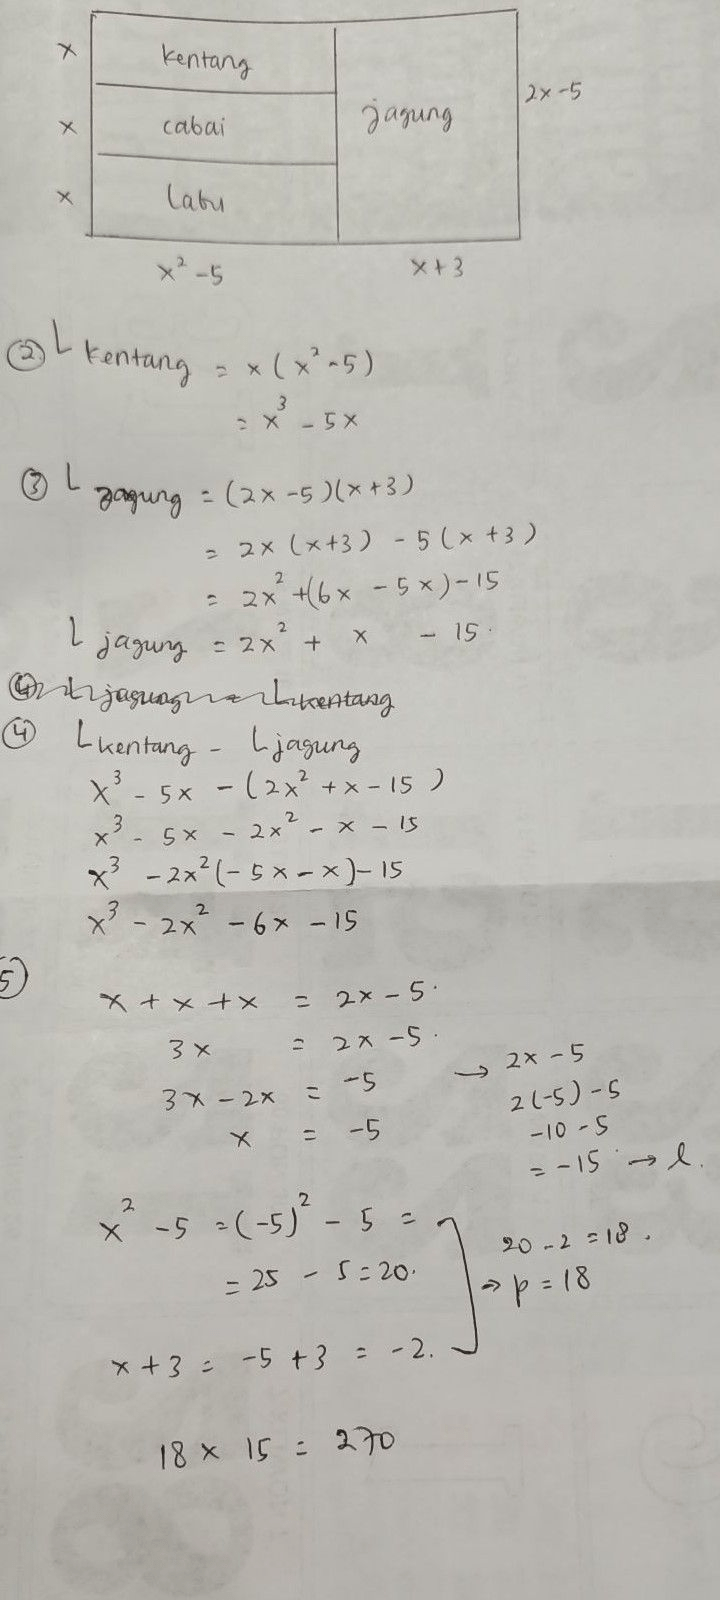 x kentang
x cabai jagung 2x-5
x Labu
x² - 5 x + 3
② L kentang = x (x² - 5)
= x³ - 5x
③ L jagung = (2x - 5)(x+3)
= 2x (x+3) - 5(x + 3)
= 2x² + (6x - 5x) - 15
L jagung = 2x² + x - 15.
④ L jagung - L kentang
④ L kentang - L jagung
x³ - 5x - (2x² + x - 15 )
x³ - 5x - 2x² - x - 15
x³ - 2x² (- 5x - x) - 15
x³ - 2x² - 6x - 15
⑤ x + x + x = 2x - 5.
3x = 2x - 5.
3x - 2x = -5
x = -5
→ 2x - 5
2(-5) - 5
-10 - 5
= -15 → l.
x² - 5 = (-5)² - 5 =
= 25 - 5 = 20.
x + 3 = -5 + 3 = -2.
20 - 2 = 18.
→ p = 18
18 x 15 = 270